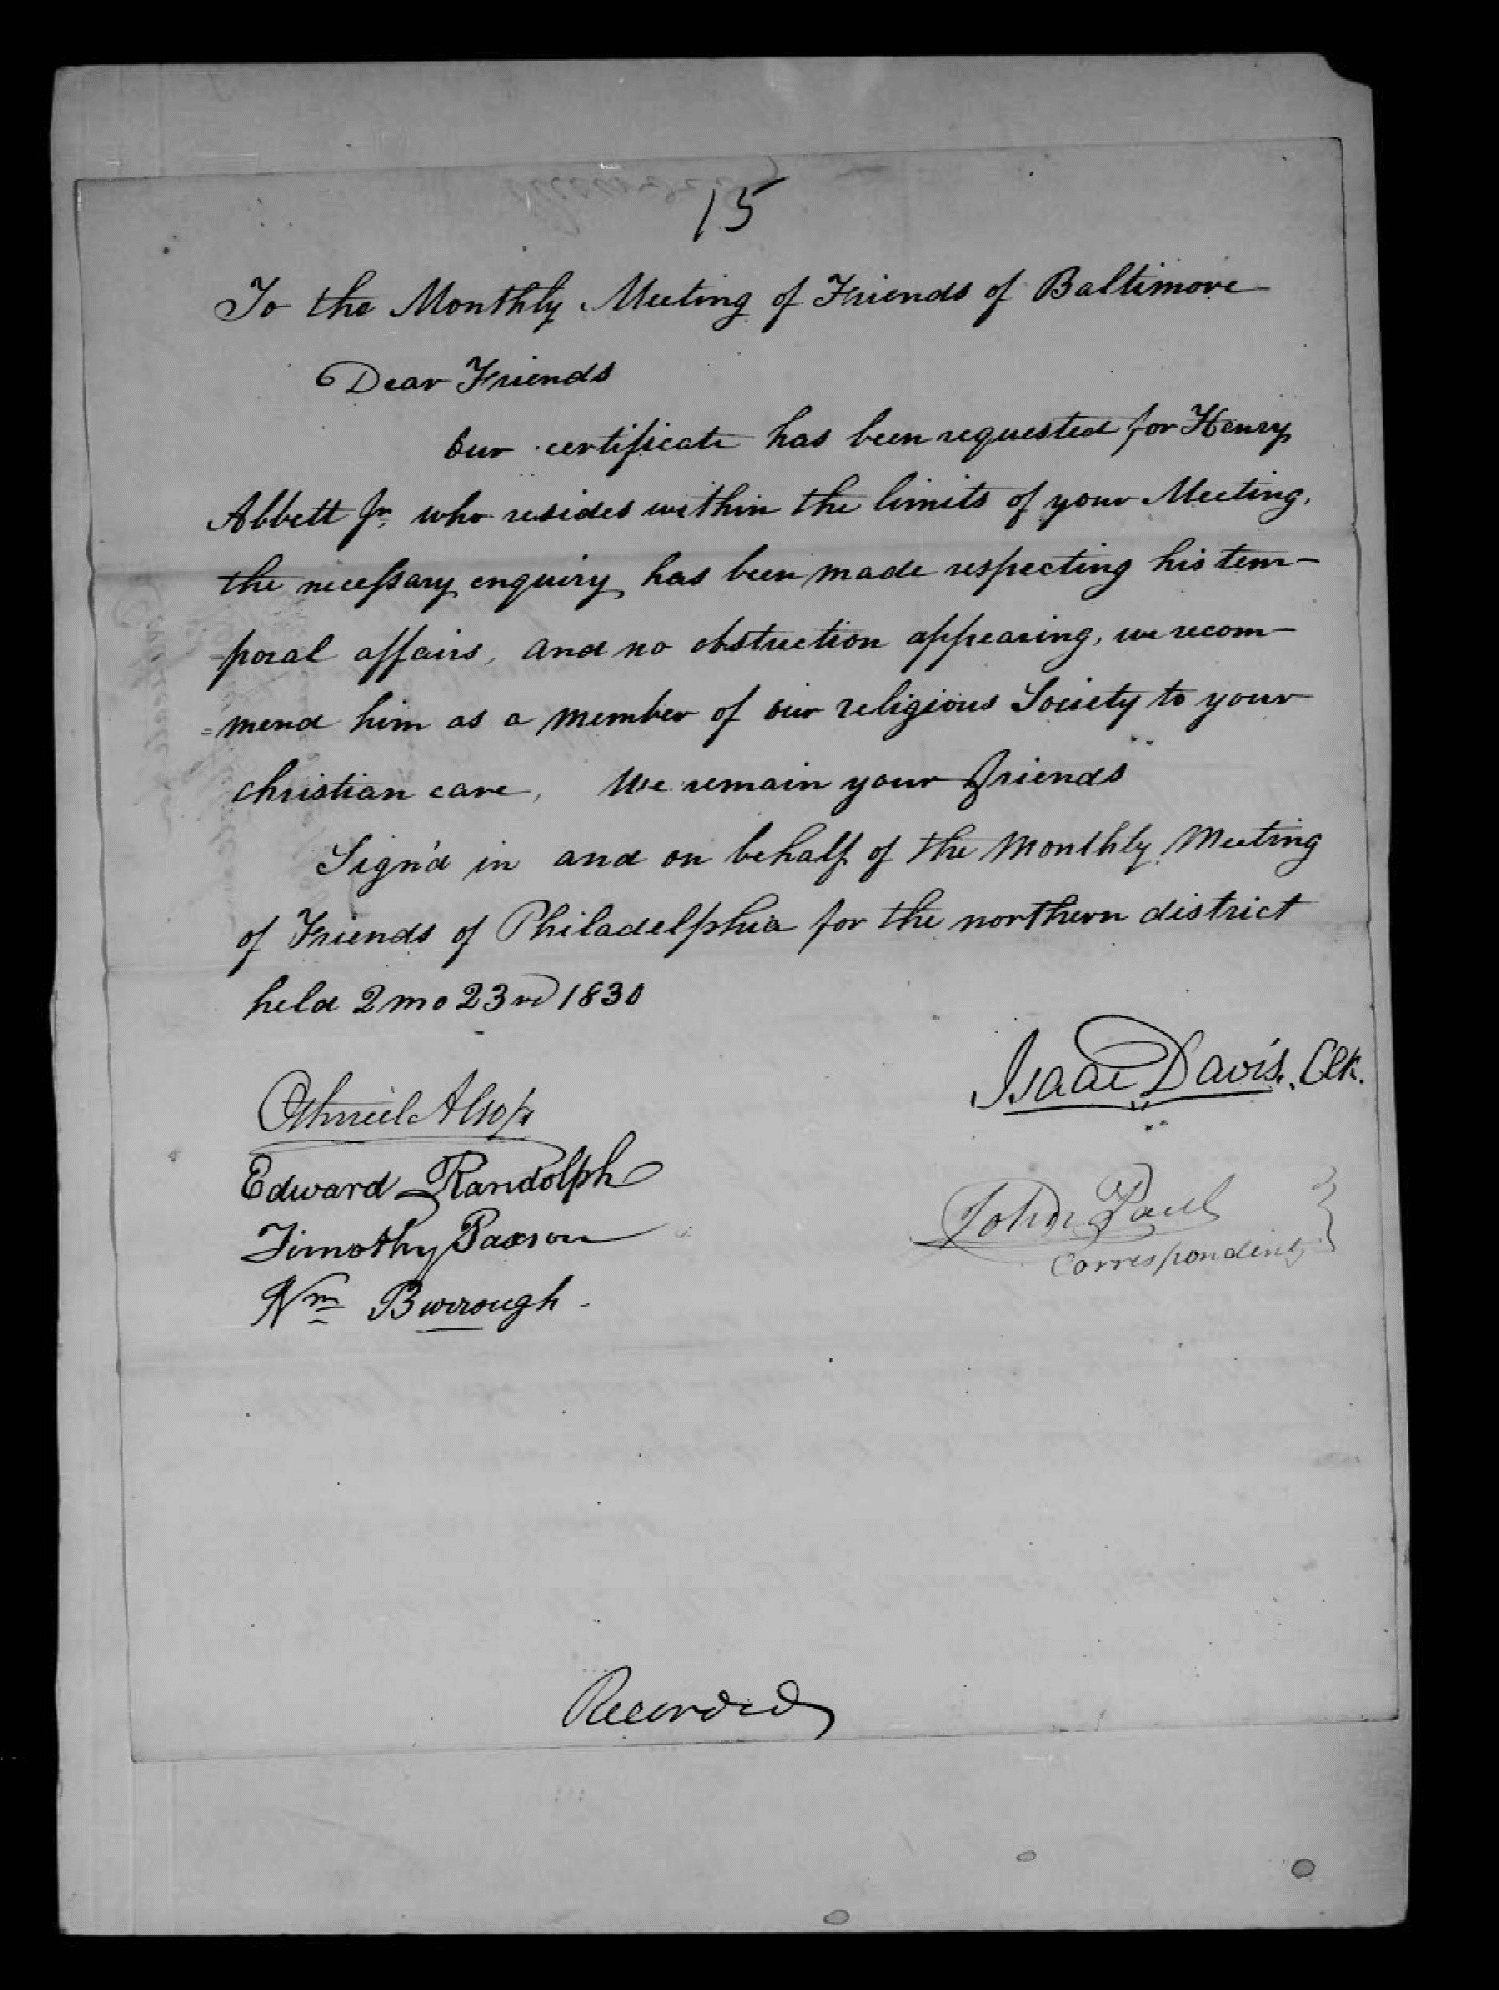 15
To the Monthly Meeting of Friends of Baltimore
Dear Friends
Our certificate has been requested for Henry
Abbett Jr. who resides within the limits of your Meeting,
the necessary enquiry has been made respecting his tem-
poral affairs, and no obstruction appearing, we recom-
=mend him as a member of our religious Society to your
christian care, We remain your friends
Sign'd in and on behalf of the Monthly Meeting
of Friends of Philadelphia for the northern district
held 2 mo 23rd 1830
Isaac Davis, Clk.
Othniel Alsop
Edward Randolph
Timothy Paxson
Wm Burrough
John Paul
Correspondent
Recorded